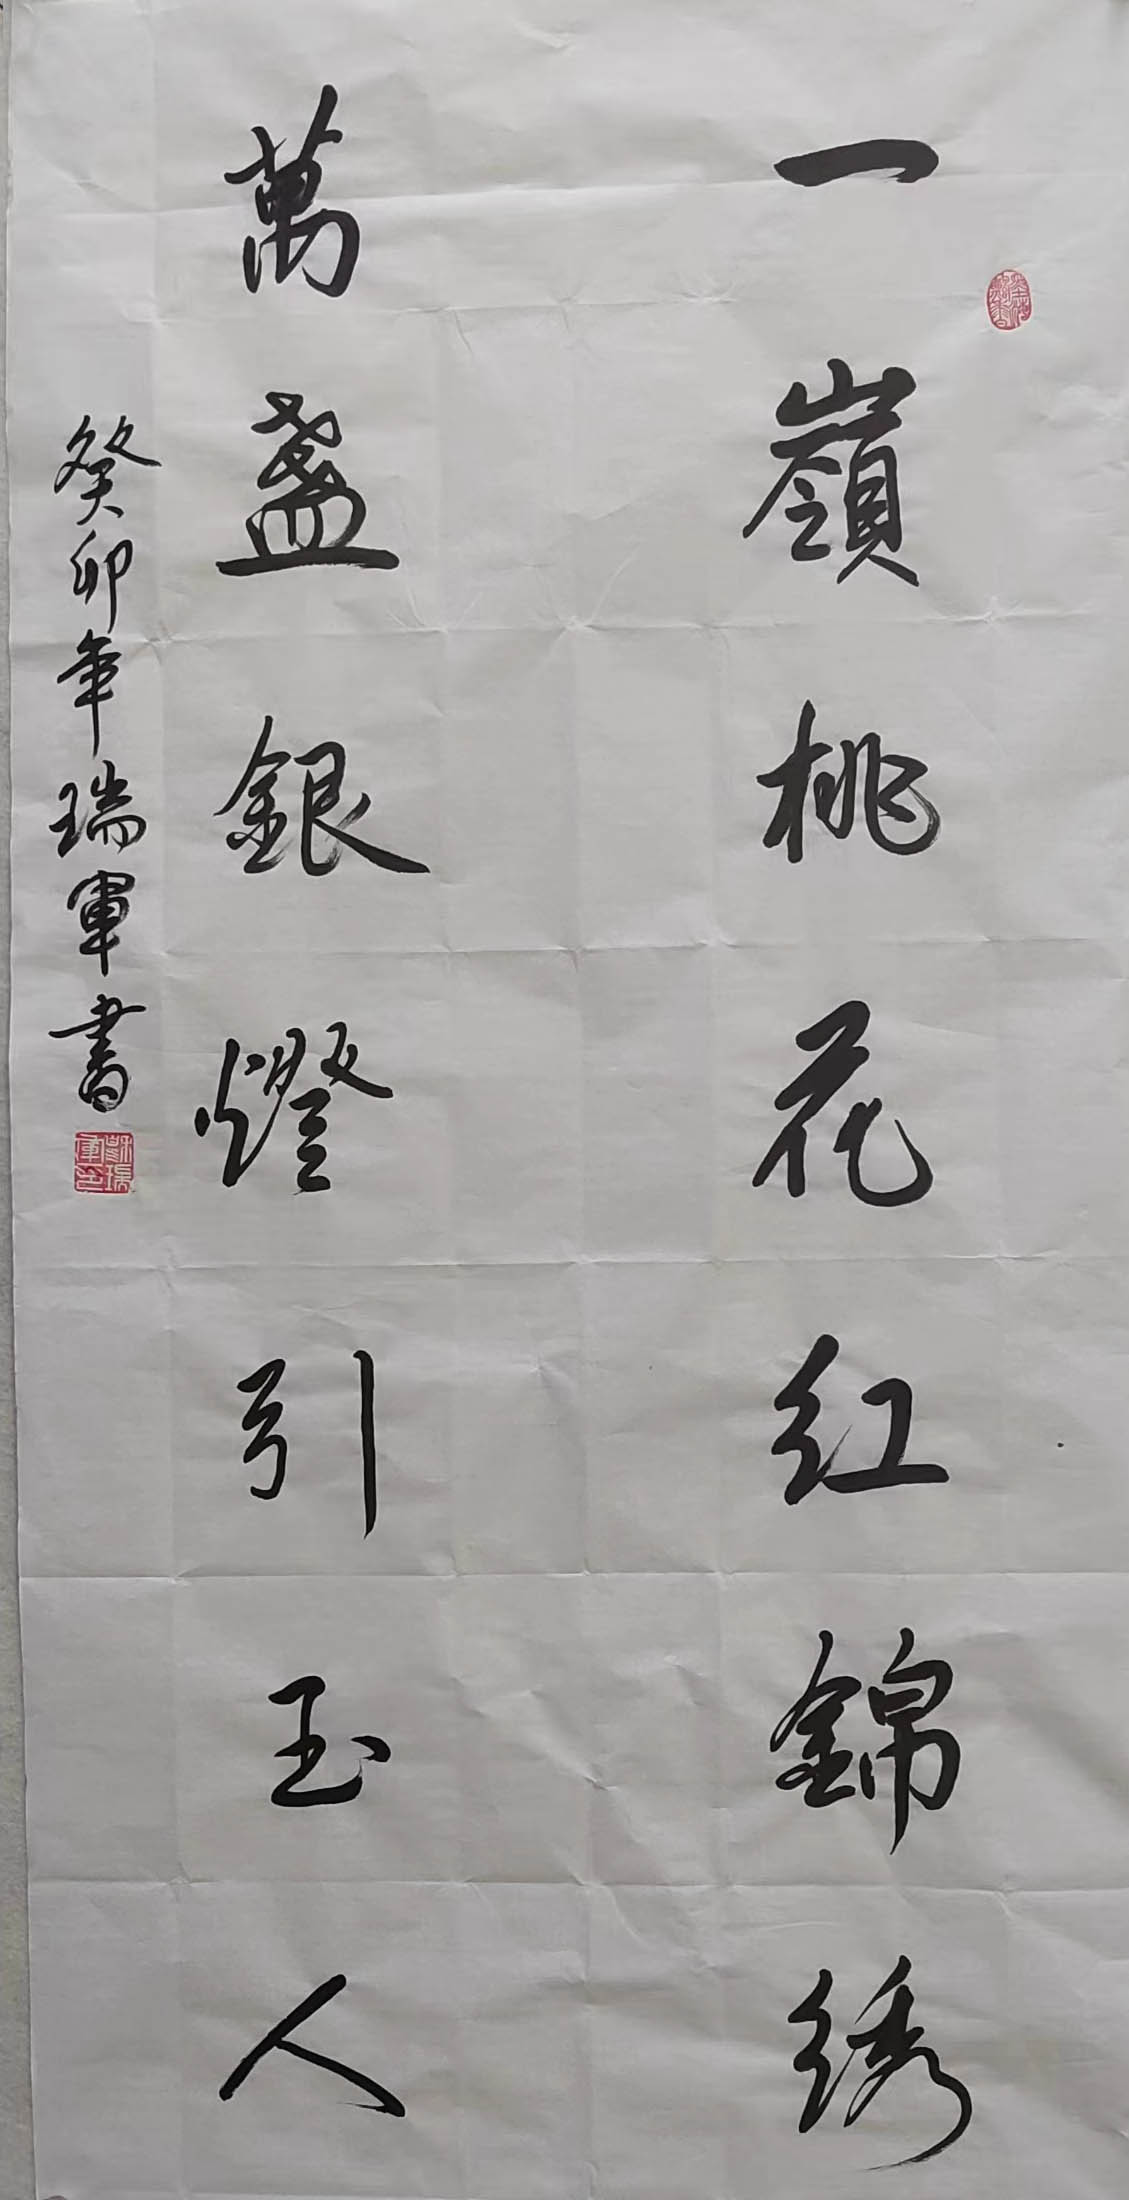 一嶺桃花红錦绣
萬盞銀燈引玉人
癸卯年瑞軍書